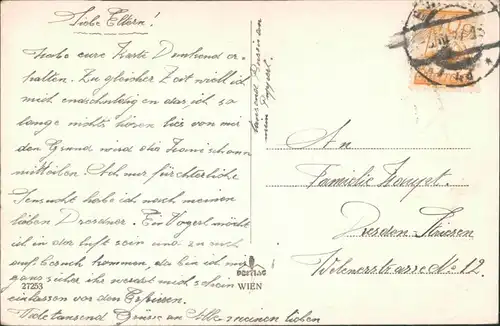 Liebe Eltern!
Habe eure Karte Dankend er-
halten. Zu gleicher Zeit will ich
mich entschuldigen das ich so
lange nichts hören lies von mir
den Grund wird die Hansi schonn
mitteilen. Ich nur fürchterliche
Sensucht habe ich nach meinen
lieben Dresdner. Ein Vogerl möcht
ich in der Luft sein und zu euch
auf Besuch kommen, da bin ich mir
ganz sicher ihr werdet mich schon
einlassen vor den
Viele tausend Grüsse an Alle meinen lieben
tausend Bussi an
mein
An
Familie Hampl.
Dresden Striesen
No 12.
27253
VERLAG
WIEN